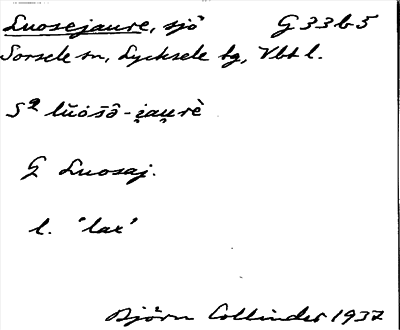 Luosejaure, sjö G 33 b 5
Sorsele sn, Lycksele tg, Vbt l.
S2 lŭòs̄ō-i̯au̯rè
G Luosaj.
l. 'lax'
Björn Collinder 1937